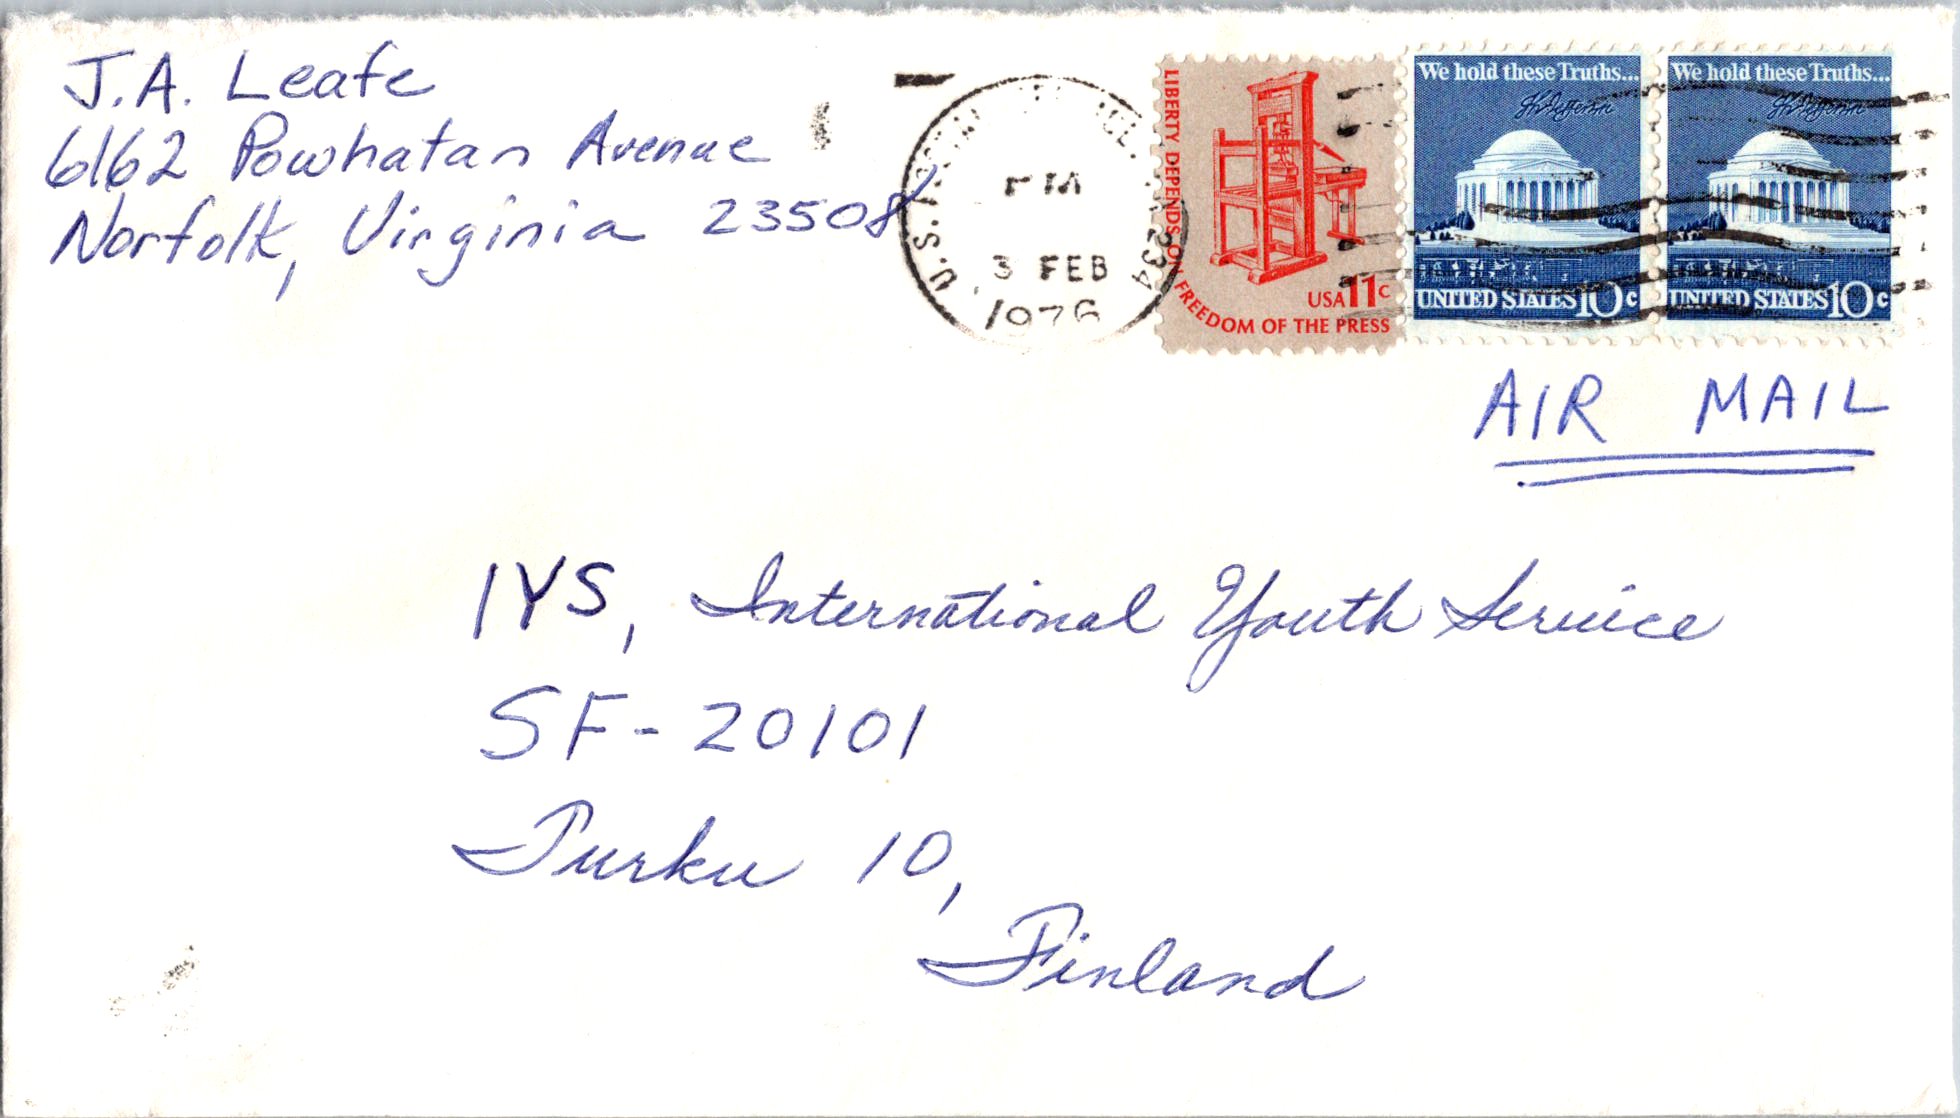 J.A. Leafe
6162 Powhatan Avenue
Norfolk, Virginia 23508
U.S. 234
PM
3 FEB
1976
LIBERTY DEPENDS ON FREEDOM OF THE PRESS
USA 11c
We hold these Truths...
Th Jefferson
UNITED STATES 10c
We hold these Truths...
Th Jefferson
UNITED STATES 10c
AIR MAIL
IYS, International Youth Service
SF-20101
Turku 10,
Finland